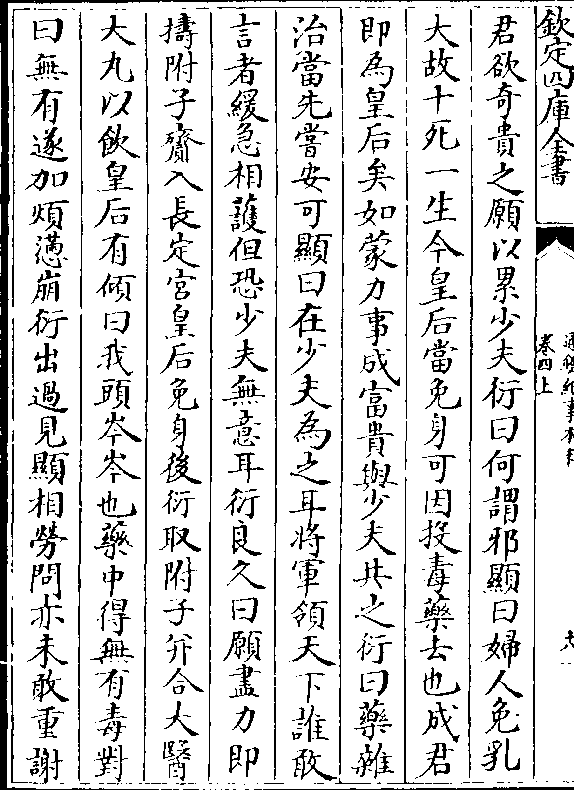 欽定四庫全書
通鑑紀事本末
卷四上
君欲奇貴之願以累少夫衍曰何謂邪顯曰婦人免乳
大故十死一生今皇后當免身可因投毒藥去也成君
即為皇后矣如蒙力事成富貴與少夫共之衍曰藥雜
治當先嘗安可顯曰在少夫為之耳將軍領天下誰敢
言者緩急相護但恐少夫無意耳衍良久曰願盡力即
擣附子齎入長定宮皇后免身後衍取附子并合大醫
大丸以飲皇后有頃曰我頭岑岑也藥中得無有毒對
曰無有遂加煩懣崩衍出過見顯相勞問亦未敢重謝